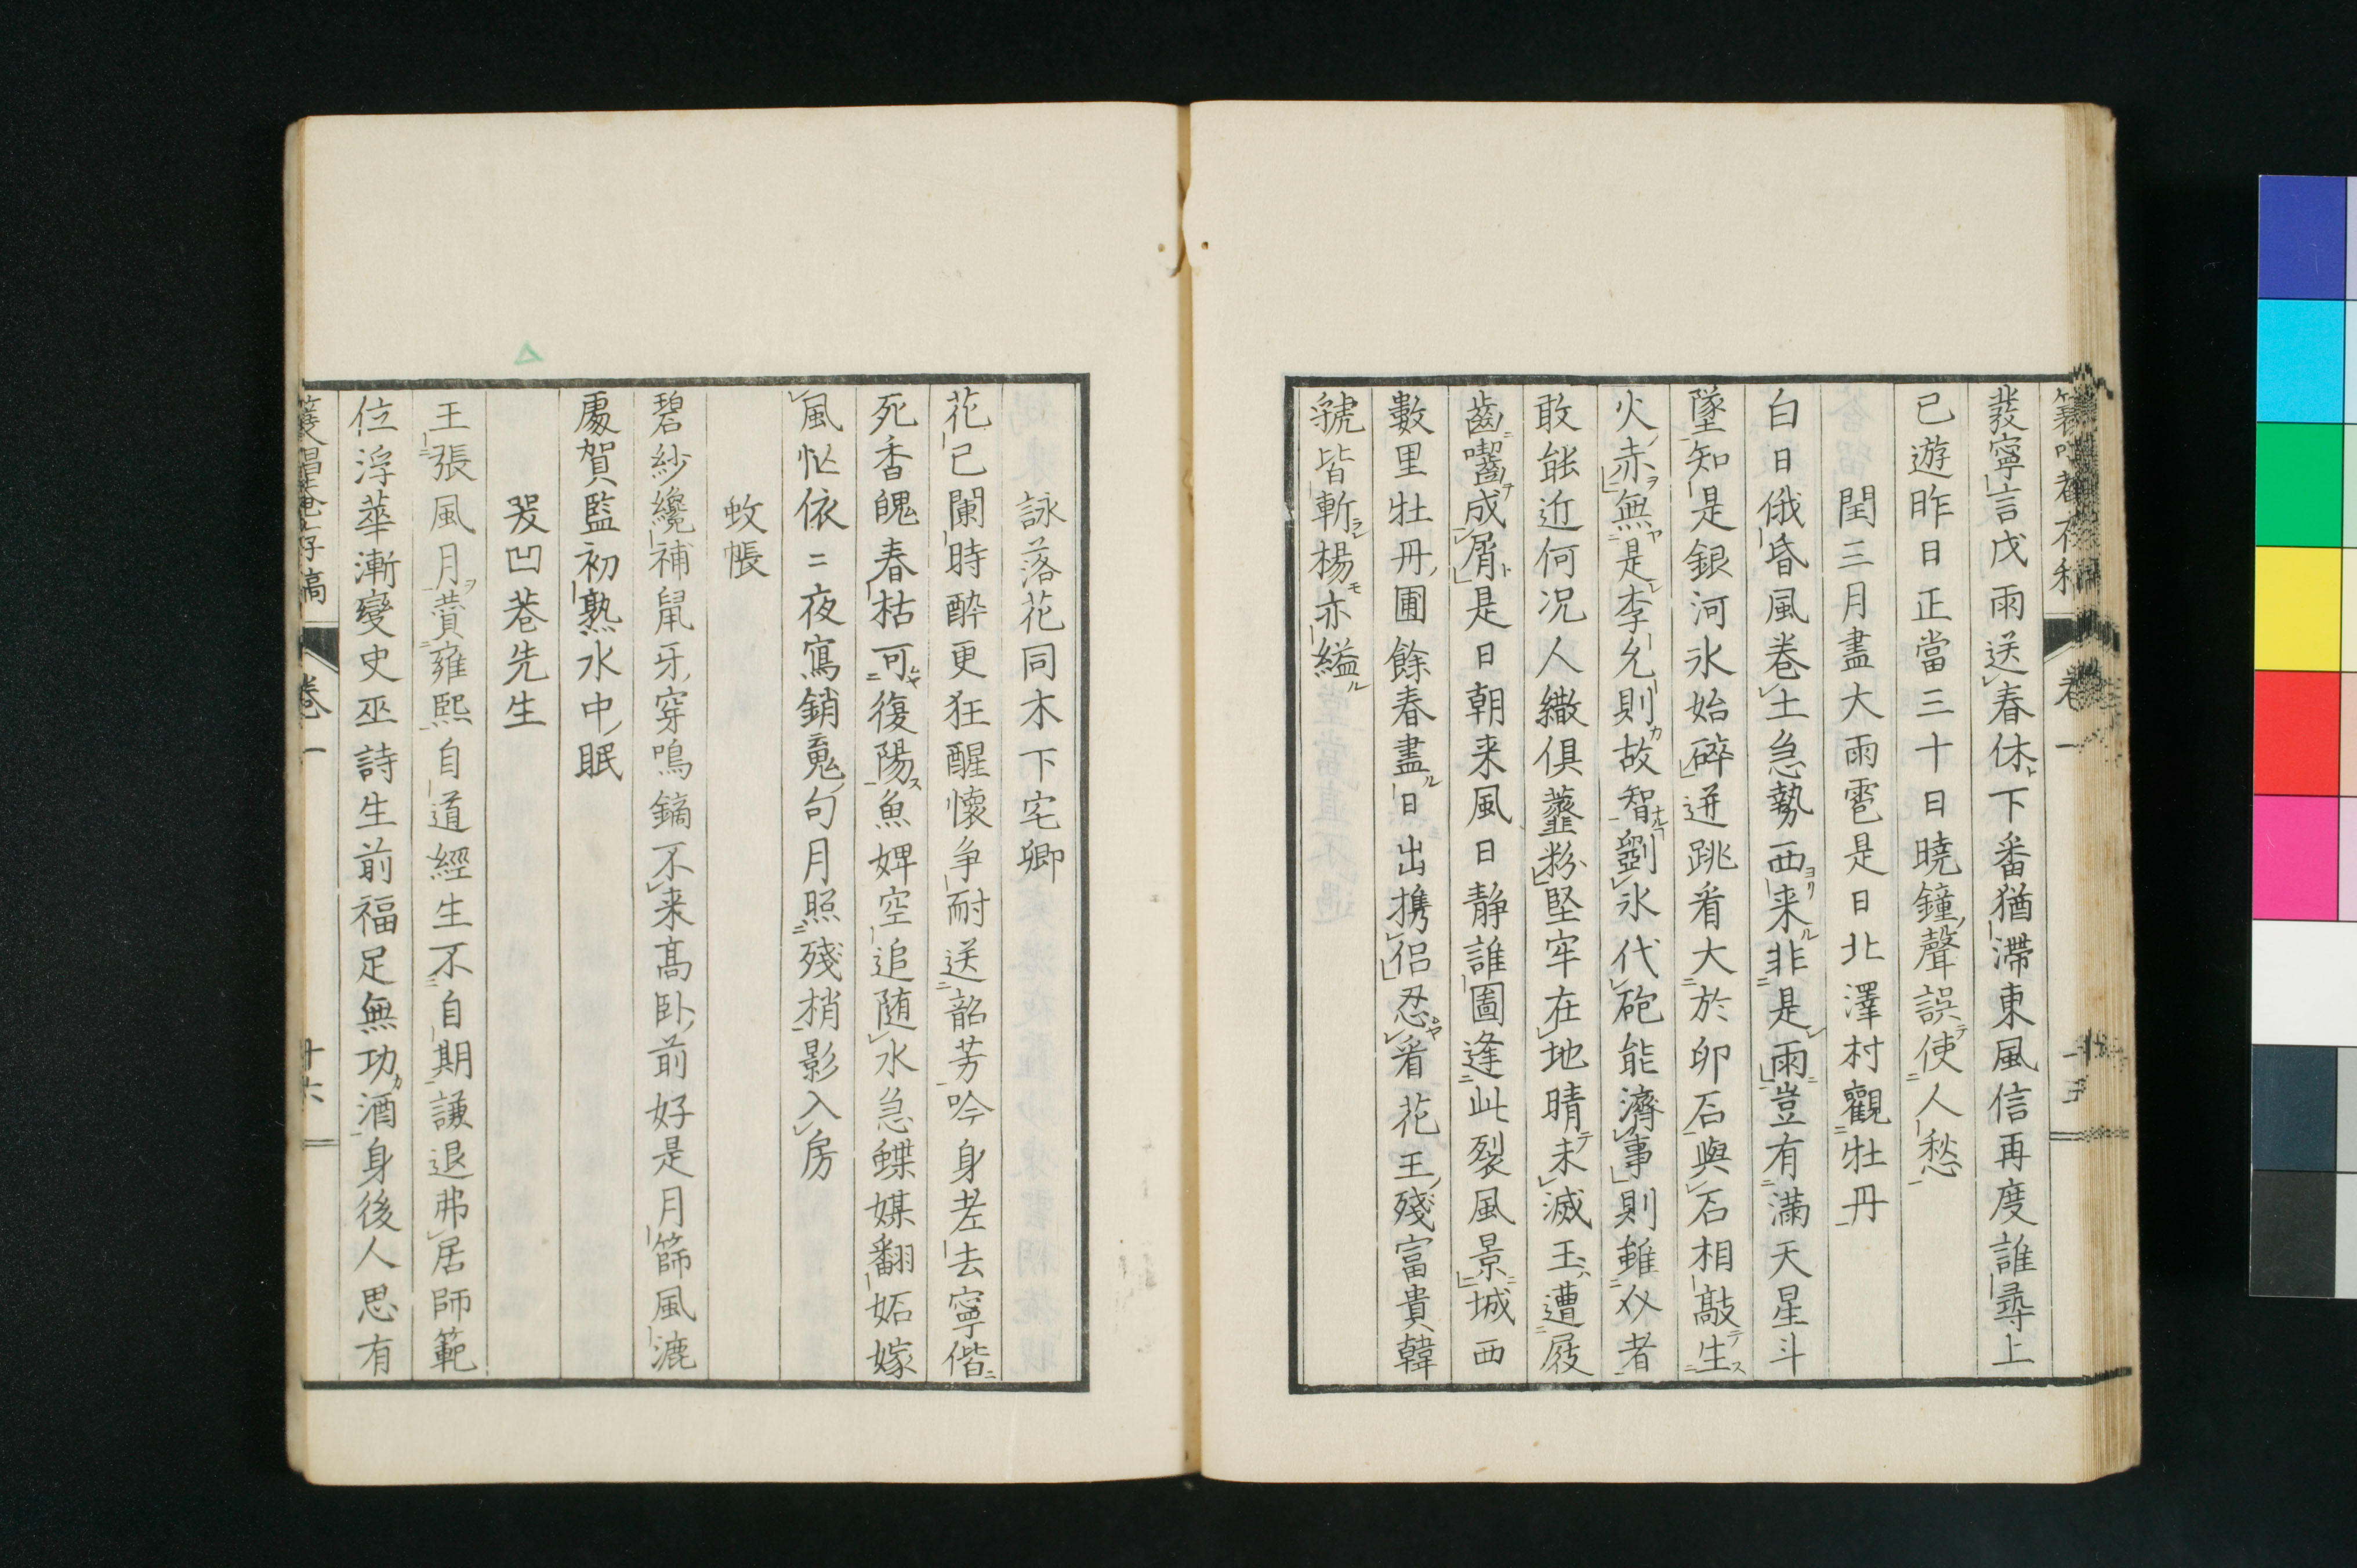 裝寧言戊雨送春休下番猶滯東風信再度誰尋上
已遊昨日正當三十日曉鐘聲誤使人愁
閏三月盡大雨雹是日北澤村觀牡丹
白日俄昏風卷土急勢西来非是雨豈有滿天星斗
墜知是銀河氷始碎迸跳看大於卵石與石相敲生
火赤無是李允則故智劉氷代砲能濟事則雖
敢能近何況人繖俱虀粉堅牢在地晴未滅玉遭屐
齒囓成屑是日朝来風日静誰圖逢此裂風景城西
數里牡丹圃餘春盡日出携侶忍看花王殘富貴韓
虢皆斬楊亦縊
卷一
詠落花同木下宅卿
花已闌時酔更狂醒懷争耐送韶芳吟身老去寧偕
死香魄春枯可復陽魚婢空追随水急蝶媒翻妬嫁
風忙依〻夜寫銷䰟句月照殘梢影入房
蚊帳
碧紗纔補鼠牙穿鳴鏑不来髙卧前好是月篩風漉
處賀監初熟水中眠
哭凹巷先生
王張風月賛雍熙自道經生不自期謙退弗居師範
位浮華漸變史巫詩生前福足無功酒身後人思有
卷一
十六